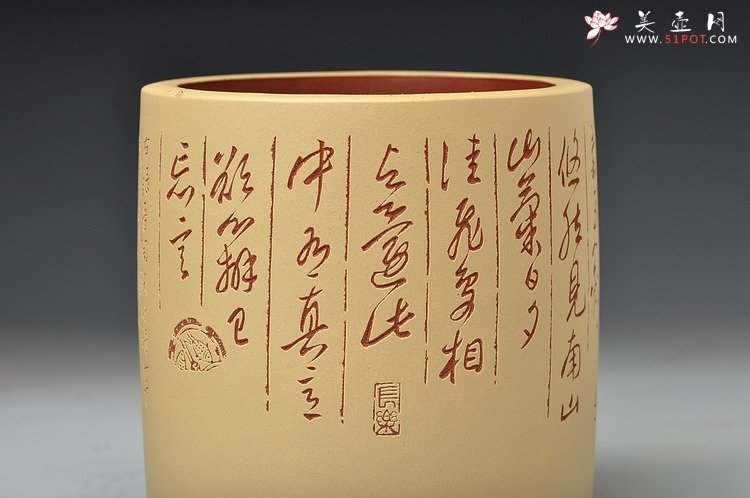 美壶网
WWW.51POT.COM
悠然見南山
山氣日夕
佳飛鳥相
与還此
中有真意
欲辨已
忘言
長樂